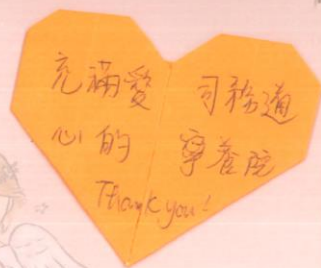 充滿愛
心的
司務道
寧養院
Thank you!